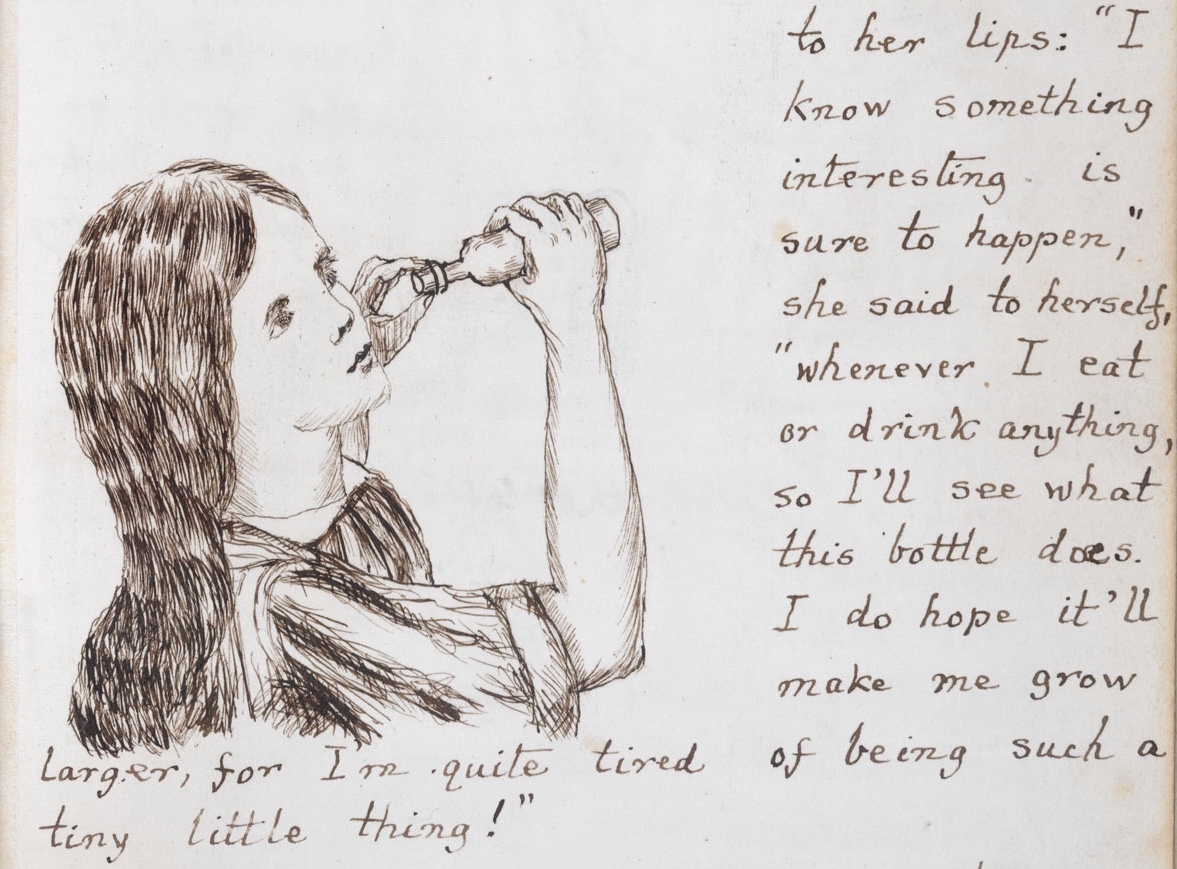 to her lips: "I
know something
interesting is
sure to happen,"
she said to herself,
"whenever I eat
or drink anything,
so I'll see what
this bottle does.
I do hope it'll
make me grow
larger, for I'm quite tired of being such a
tiny little thing!"